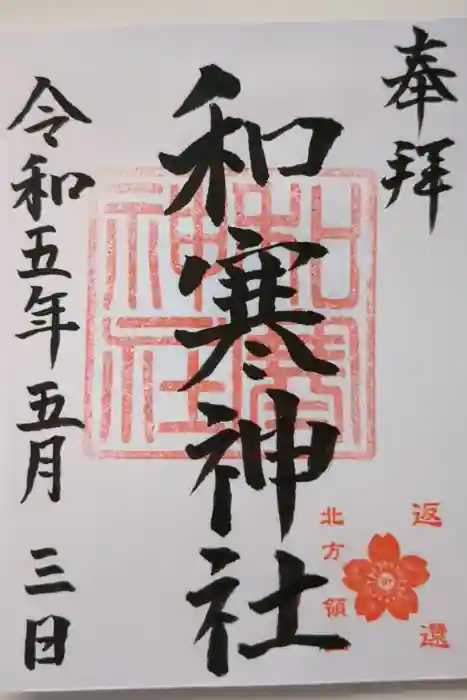 奉拝
和寒神社
令和五年五月三日
和寒神社
返還
北方領